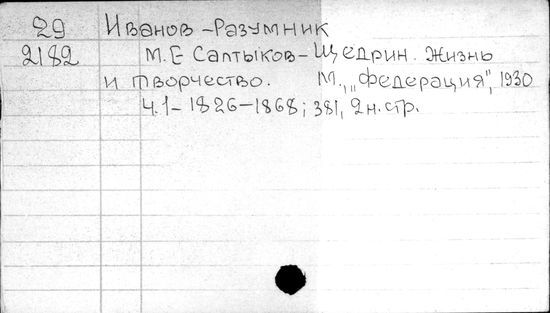 29 Иванов-Разумник
2182 М.Е Салтыков-Щедрин. Жизнь
и творчество. М., „Федерация", 1930
Ч.1-1826-1868; 381, 2н.стр.